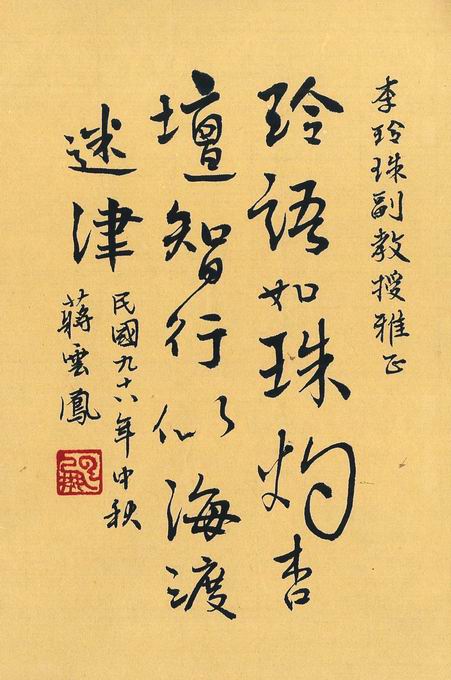 李玲珠副教授雅正
玲語如珠灼杏
壇智行似海渡
迷津
民國九十六年中秋
蔣雲鳳